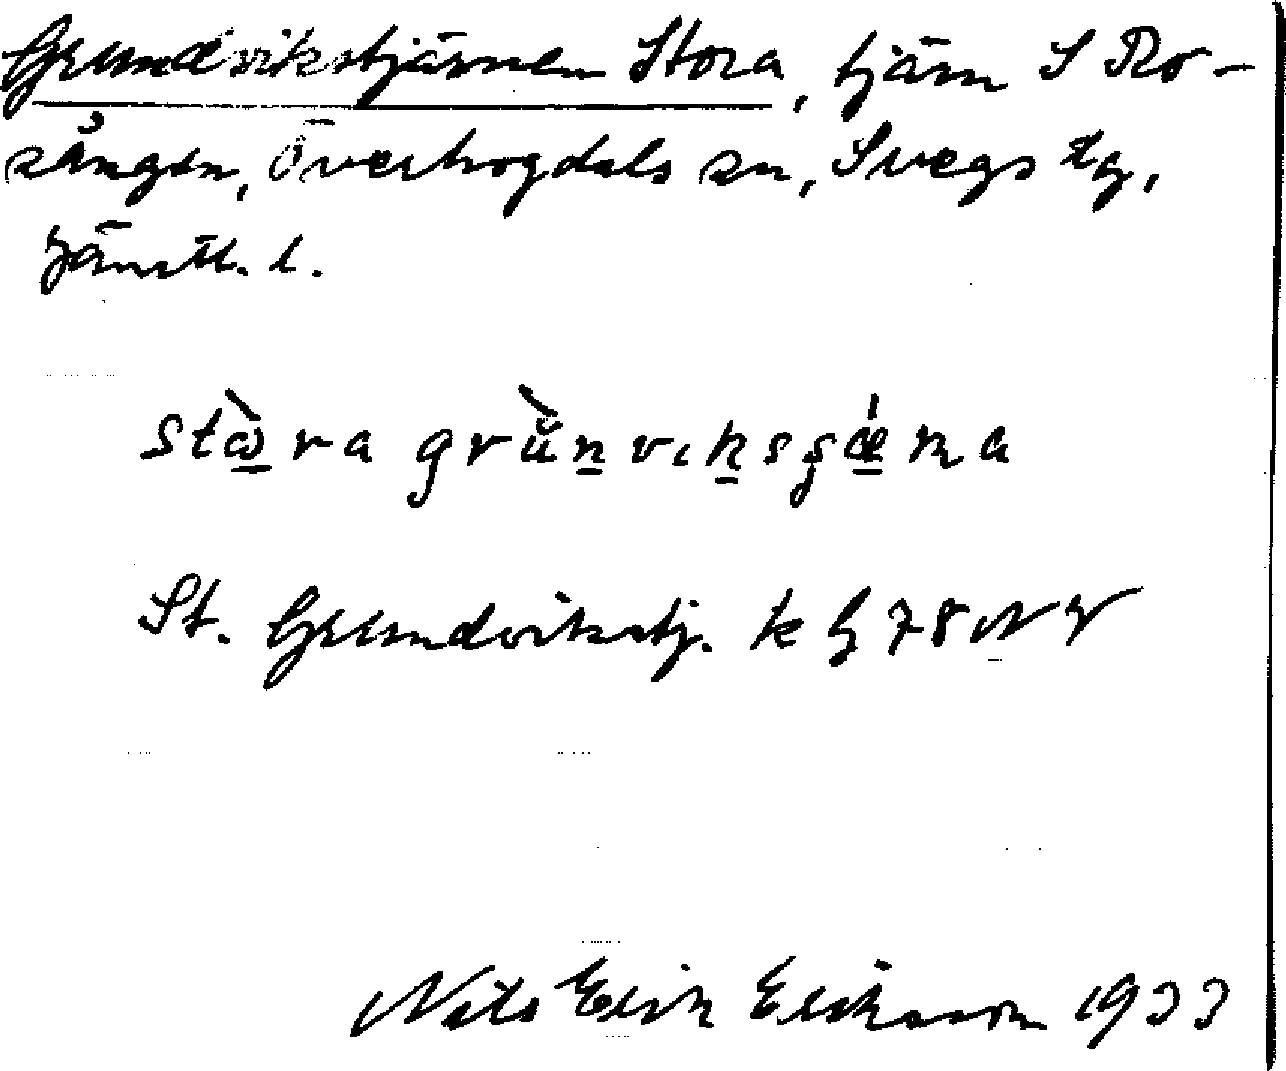 Grundvikstjärnen Stora, tjärn S Ro-
sången, Överhogdals sn, Svegs tg,
Jämtl. l.
stὼ̲ra grùn̲vık̲sʂǽ̲ɳa
St. Grundvikstj. k bl 78 NV
Nils Erik Eriksson 1933